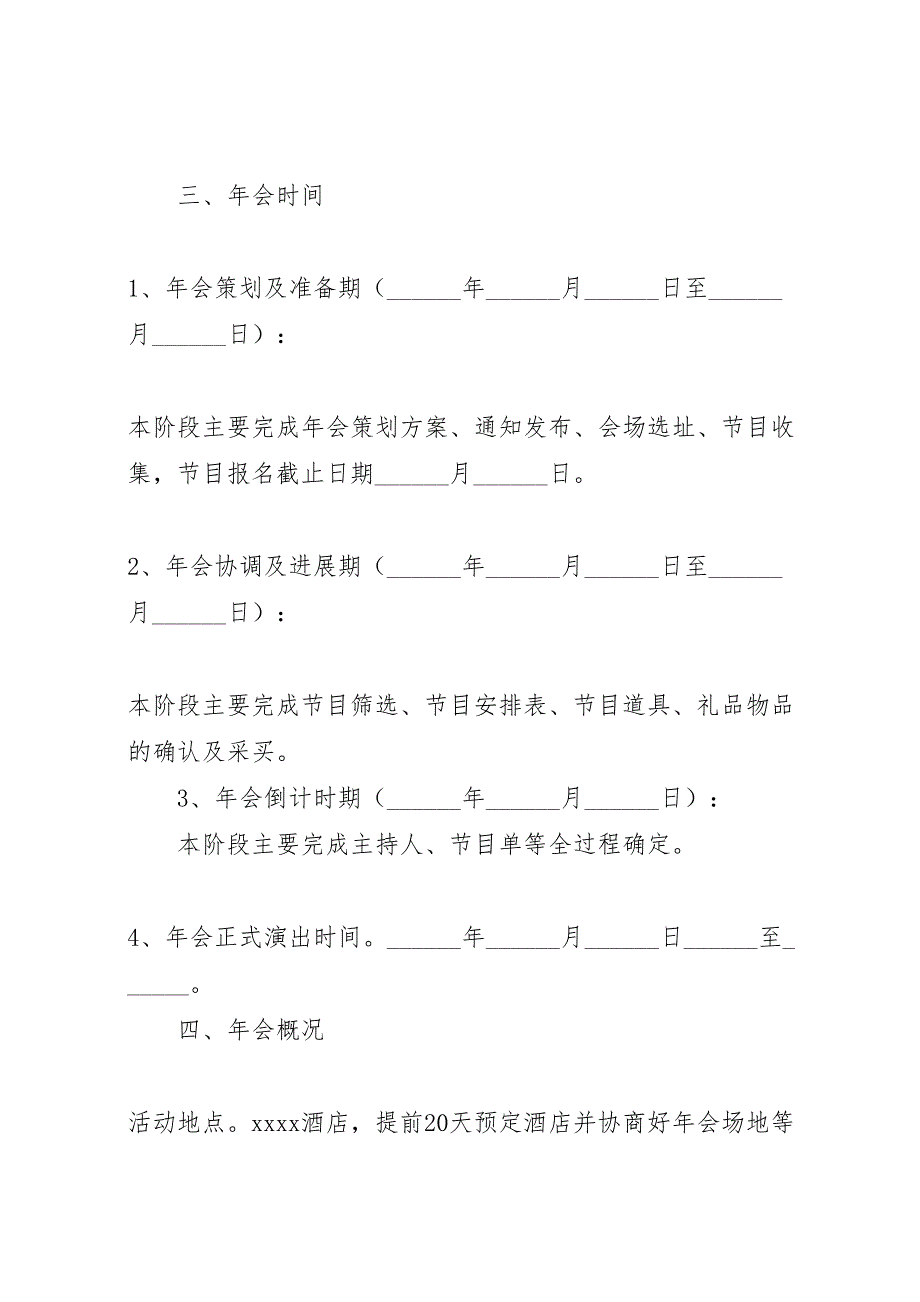 三、年会时间
1、年会策划及准备期（______年______月______日至______
月______日）：
本阶段主要完成年会策划方案、通知发布、会场选址、节目收
集，节目报名截止日期______月______日。
2、年会协调及进展期（______年______月______日至______
月______日）：
本阶段主要完成节目筛选、节目安排表、节目道具、礼品物品
的确认及采买。
3、年会倒计时期（______年______月______日）：
本阶段主要完成主持人、节目单等全过程确定。
4、年会正式演出时间。______年______月______日______至_
_____。
四、年会概况
活动地点。xxxx酒店，提前20天预定酒店并协商好年会场地等